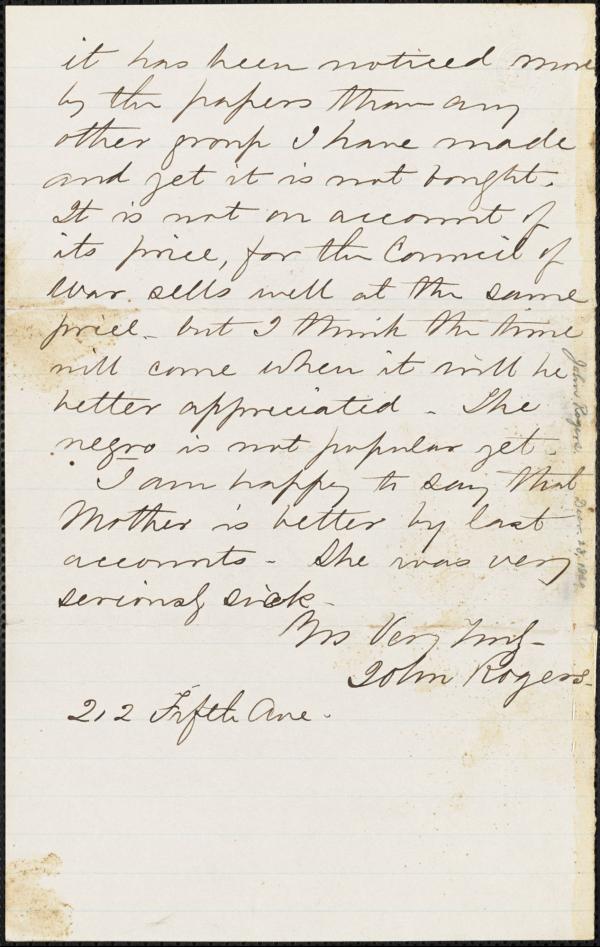 it has been noticed more
by the papers than any
other group I have made
and yet it is not bought.
It is not on account of
its price, for the Council of
War sells well at the same
price - but I think the time
will come when it will be
better appreciated - The
negro is not popular yet -
I am happy to say that
Mother is better by last
accounts - She was very
seriously sick -
Yrs Very Truly -
John Rogers -
212 Fifth Ave.
John Rogers. Dec. 28,